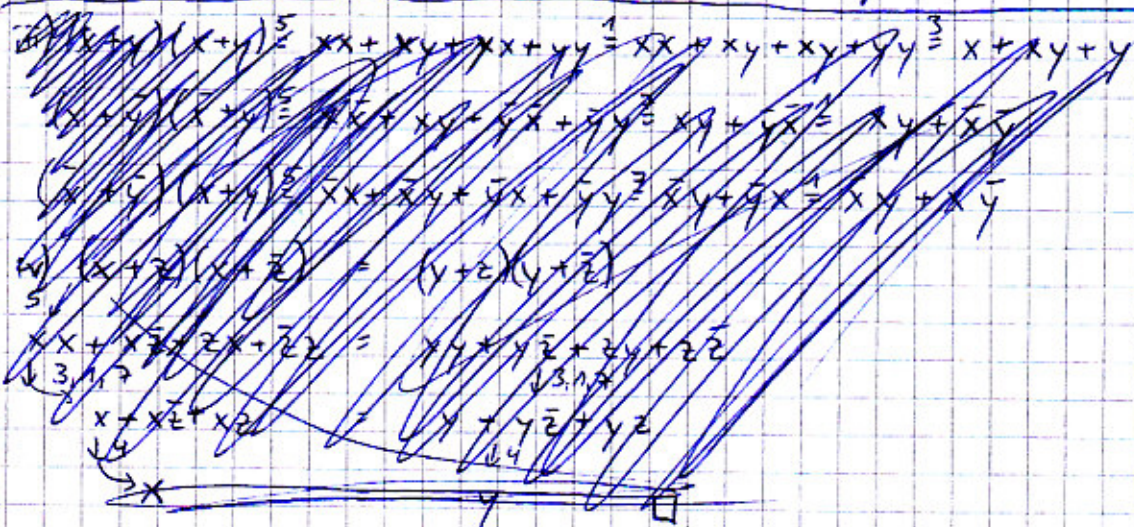 (x+y)(x+y) ⁵= xx + xy + xx + yy ¹= xx + xy + xy + yy ³= x + xy + y
(x+ȳ)(x̄+y) ⁵= xx̄ + xy + ȳx̄ + ȳy ⁷= xy + ȳx̄ ¹= xy + x̄ȳ
(x̄+ȳ)(x+y) ⁵= x̄x + x̄y + ȳx + ȳy ⁷= x̄y + ȳx ¹= x̄y + xȳ
(x+z)(x+z̄) = (y+z)(y+z̄)
5↓
xx + xz̄ + zx + z̄z = yy + yz̄ + zy + zz̄
↓ 3,1,7 ↓ 3,1,7
x + xz̄ + xz = y + yz̄ + yz
↓4 ↓4
x = y □